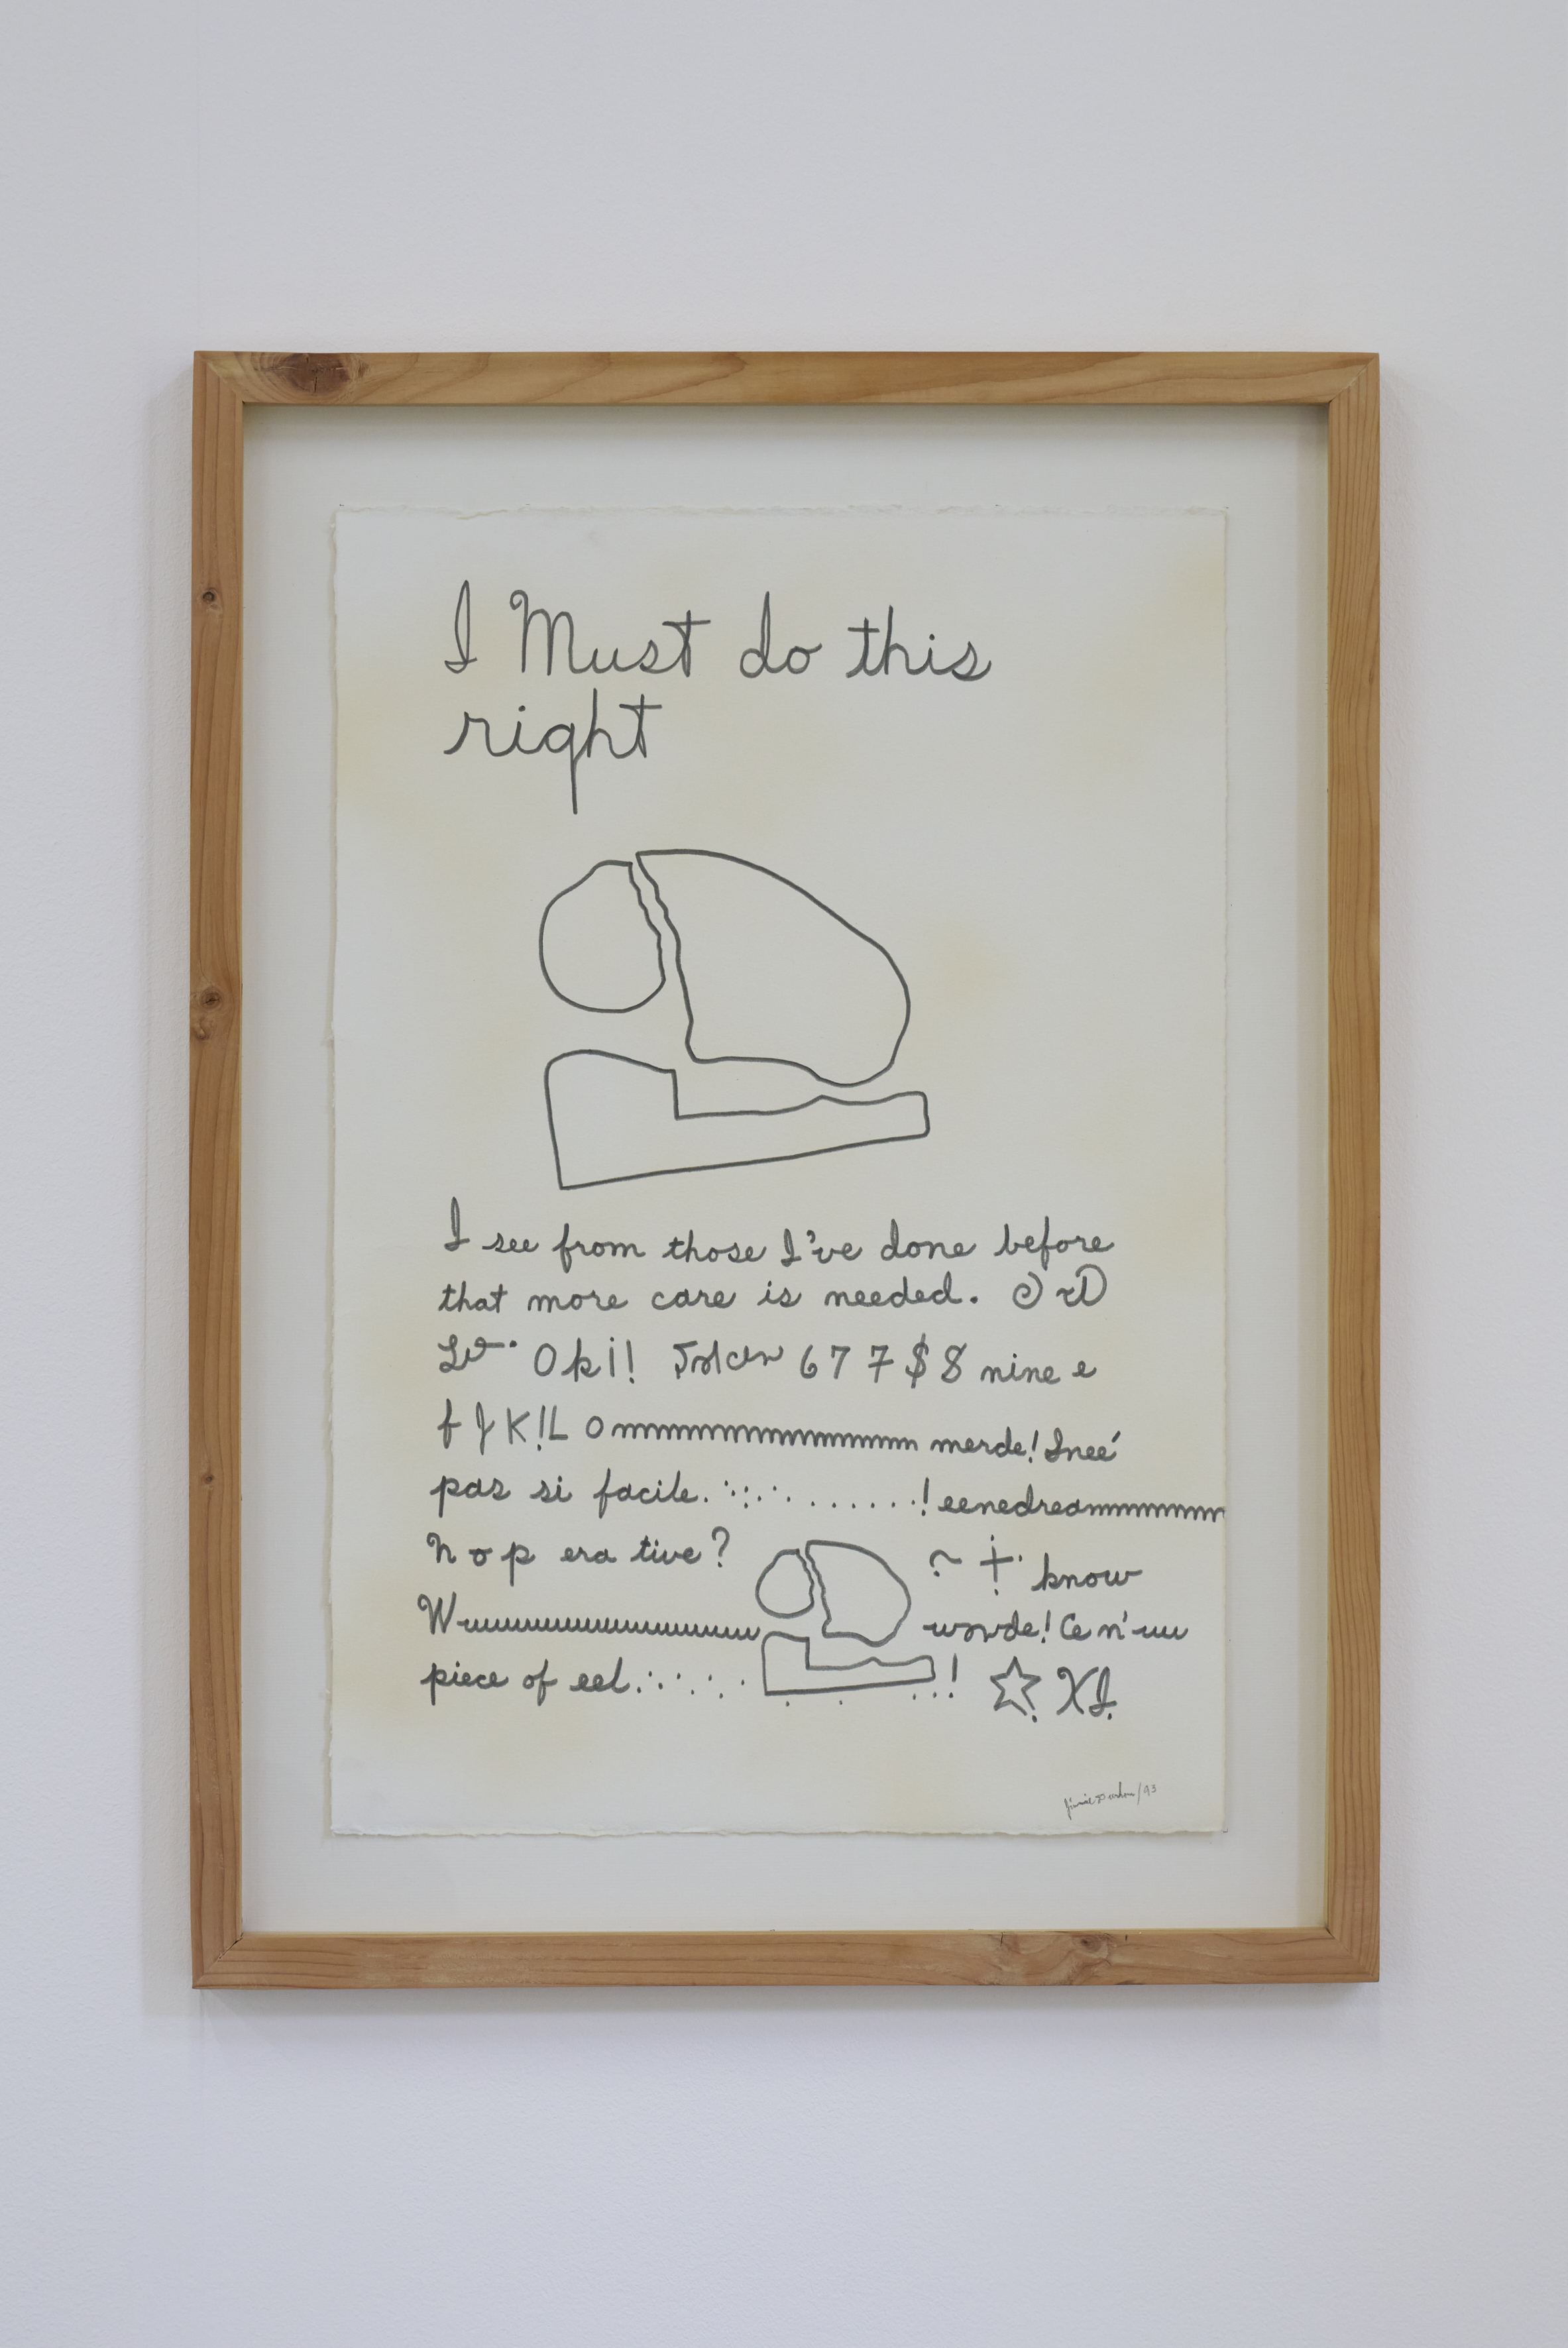 I Must do this
right
I see from those I've done before
that more care is needed.
Oki! 6 7 7 $ 8 nine e
f J K!L Ommmmmmmmmmmmmmmm merde! Ineé
pas si facile. ! eenedreammmmmmm
n o p era tive? know
Wuuuuuuuuuuuuuuuuu worde! Ce n'uu
piece of eel. ! XI.